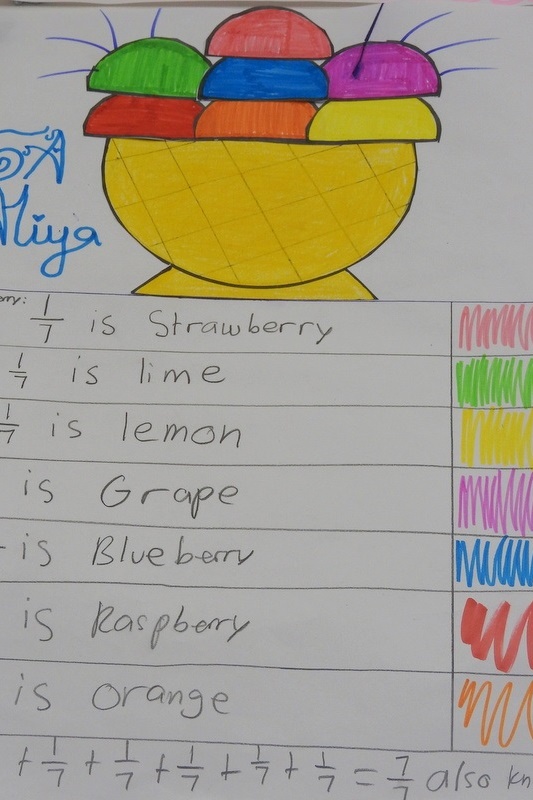 Miya
1/7 is Strawberry
1/7 is lime
1/7 is lemon
is Grape
is Blueberry
is Raspberry
is orange
+ 1/7 + 1/7 + 1/7 + 1/7 + 1/7 = 7/7 also